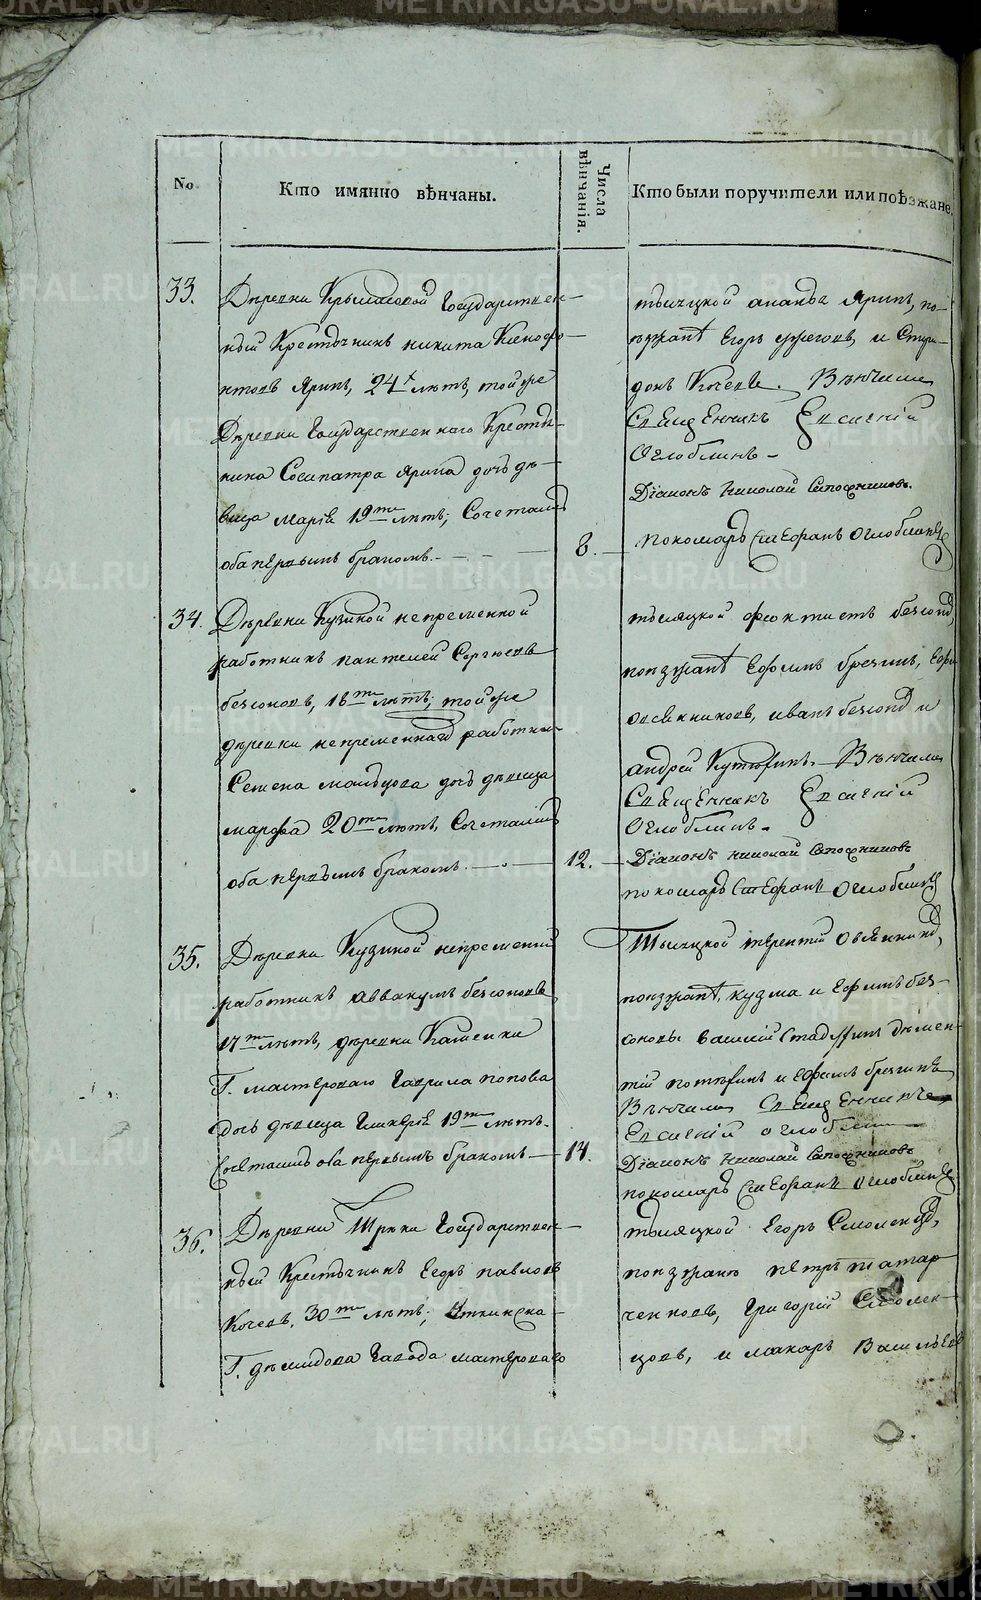 No
Кто имянно вѣнчаны.
Числа вѣнчанія.
Кто были поручители или поѣзжане.
33.
Деревни Крыласовой Государствен-
ный Крестьянинъ никита Ксенофо-
нтовъ Яринъ, 24 х лѣтъ, тойже
Деревни Государственнаго Крестья-
нина Сосипатра Ярина дочь дѣ-
вица марія 19ти лѣтъ; Сочетались
оба первымъ бракомъ.
8.
тысяцкой Яринъ, по-
ѣзжанѣ Егоръ и Спири-
донъ Кочевъ. Вѣнчали
Священникъ Евсигній
Оглоблинъ
Діаконъ Николай Сапожниковъ.
пономарь Стефанъ Оглоблинъ
34.
Деревни Кузиной непременной
работникъ пантелей Сергѣевъ
безсоновъ, 18ти лѣтъ; тойже
деревни непременнаго работни-
Семена мальцова дочь дѣвица
марфа 20ти лѣтъ, Сочетались
оба первымъ бракомъ.
12.
тысяцкой феоктистъ безсоновъ,
поезжанѣ Ефимъ брезгинъ,
овсянниковъ, иванъ безсоновъ и
андрей Кутюхинъ. Вѣнчали
Священникъ Евсигній
Оглоблинъ
Діаконъ Николай Сапожниковъ
пономарь Стефанъ Оглоблинъ
35.
Деревни Кузиной непременный
работникъ аввакумъ безсоновъ
17ти лѣтъ, деревни Каменки
Г. мастероваго Гаврила попова
дочь дѣвица Гликерія 19ти лѣтъ.
Сочетались оба первымъ бракомъ
14.
Тысяцкой терентій Овсянниковъ,
поезжанѣ, кузма и Ефимъ без-
соновы василій
и ефимъ брезгинъ,
Вѣнчали Священникъ
Евсигній оглоблинъ
Діаконъ Николай Сапожниковъ
пономарь Стефанъ Оглоблинъ
36.
Деревни Треки Государствен-
ный Крестьянинъ Егоръ павловъ
Кочевъ, 30ти лѣтъ; Уткинска-
Г. демидова Завода мастероваго
тысяцкой Егоръ Смоленцовъ,
поезжана петръ татар-
ченковъ, Григорій Смолен-
цовъ, и макаръ Васильевъ